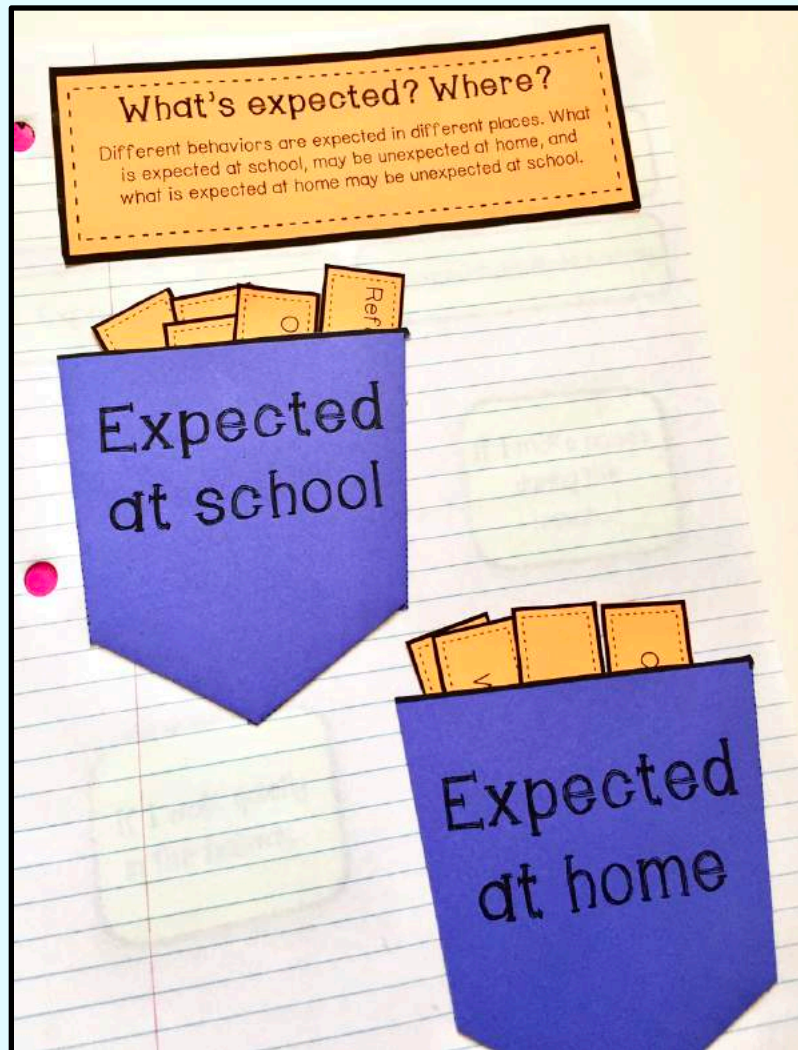 What's expected? Where?
Different behaviors are expected in different places. What
is expected at school, may be unexpected at home, and
what is expected at home may be unexpected at school.
Ref
O
Expected
at school
V
O
Expected
at home